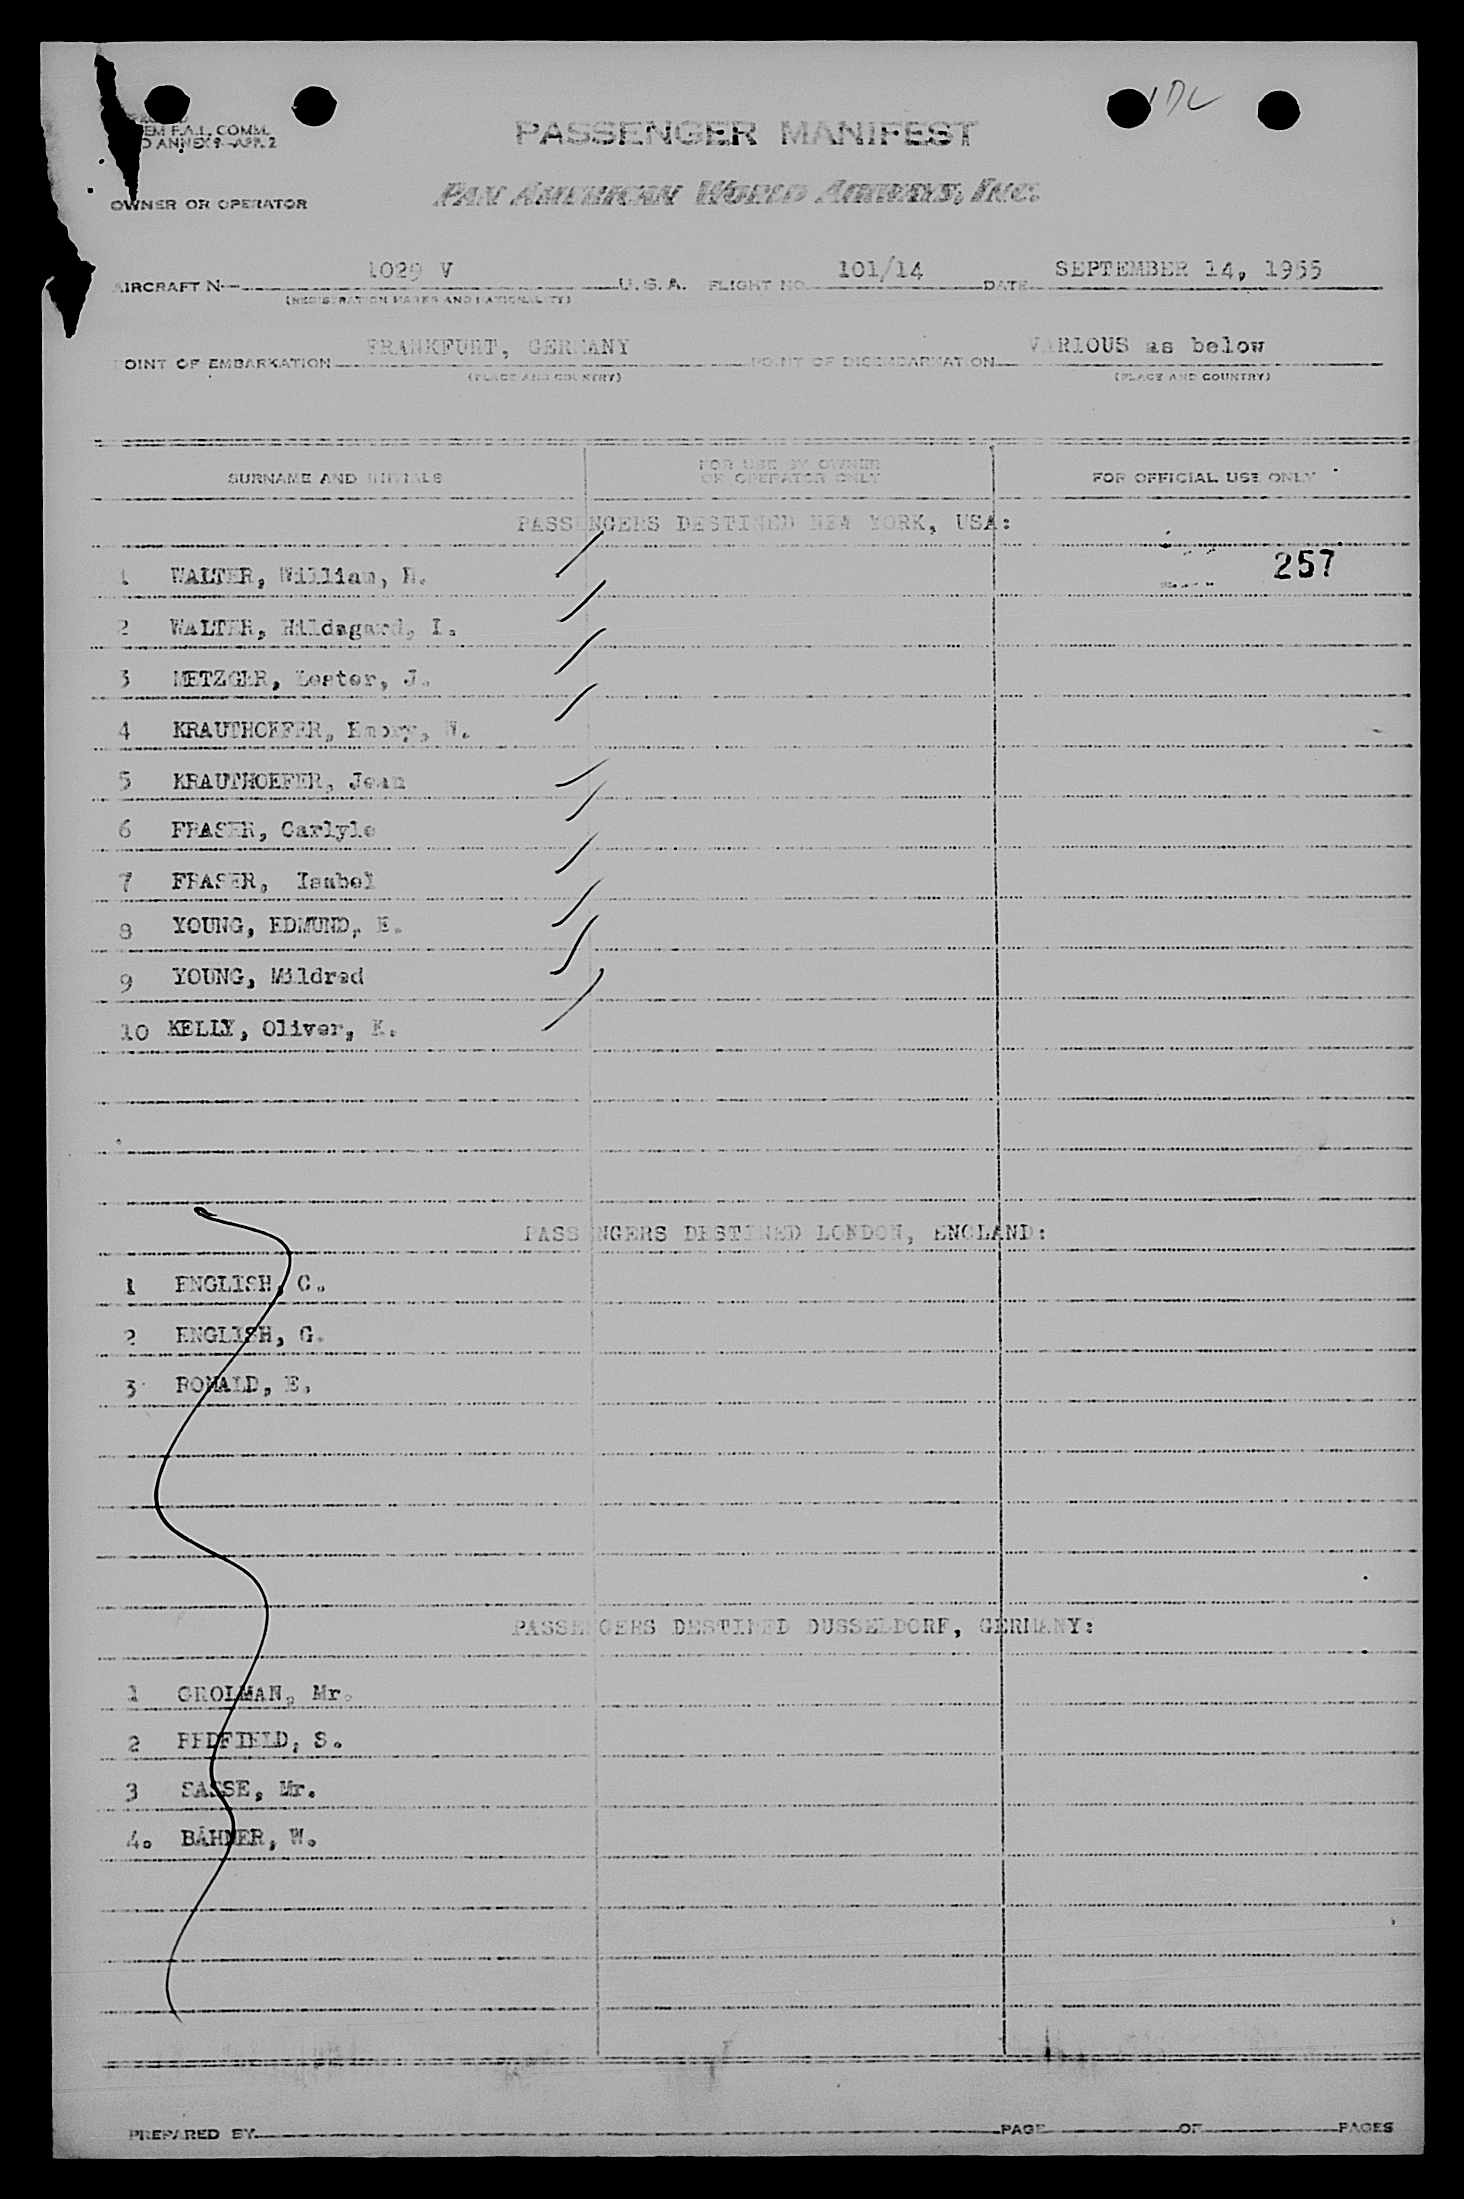 IDL
EM F.A.I. COMM.
ANNEX 9-APP. 2
PASSENGER MANIFEST
OWNER OR OPERATOR
PAN AMERICAN WORLD AIRWAYS, INC.
AIRCRAFT N 1029 V U.S.A. FLIGHT NO. 101/14 DATE SEPTEMBER 14, 1955
(REGISTRATION MARKS AND NATIONALITY)
POINT OF EMBARKATION FRANKFURT, GERMANY POINT OF DISEMBARKATION VARIOUS as below
(PLACE AND COUNTRY) (PLACE AND COUNTRY)
SURNAME AND INITIALS FOR USE BY OWNER OR OPERATOR ONLY FOR OFFICIAL USE ONLY
PASSENGERS DESTINED NEW YORK, USA:
1 WALTER, William, H. 257
2 WALTER, Hildegard, I.
3 METZGER, Lester, J.
4 KRAUTHOEFER, Emory, W.
5 KRAUTHOEFER, Jean
6 FRASER, Carlyle
7 FRASER, Isabel
8 YOUNG, EDMUND, E.
9 YOUNG, Mildred
10 KELLY, Oliver, K.
PASSENGERS DESTINED LONDON, ENGLAND:
1 ENGLISH, C.
2 ENGLISH, G.
3 RONALD, E.
PASSENGERS DESTINED DUSSELDORF, GERMANY:
1 GROLMAN, Mr.
2 REDFIELD, S.
3 SASSE, Mr.
4. BÄHNER, W.
PREPARED BY PAGE OF PAGES